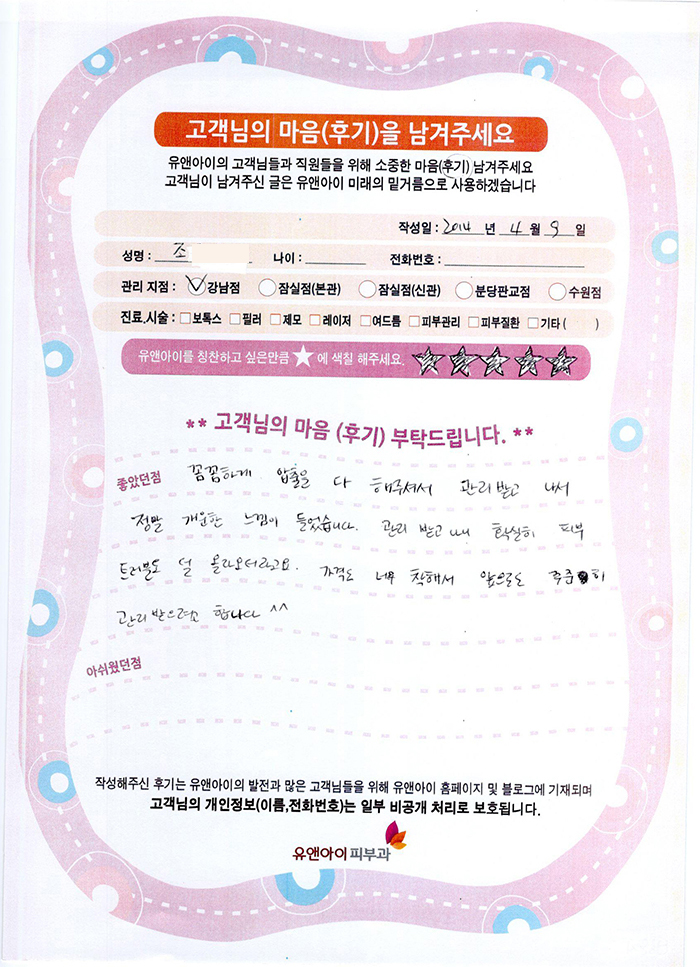 고객님의 마음(후기)을 남겨주세요
유앤아이의 고객님들과 직원들을 위해 소중한 마음(후기) 남겨주세요
고객님이 남겨주신 글은 유앤아이 미래의 밑거름으로 사용하겠습니다
작성일 : 2014 년 4 월 9 일
성명 : 조 나이 : 전화번호 :
관리 지점 : 강남점 잠실점(본관) 잠실점(신관) 분당판교점 수원점
진료,시술 : 보톡스 필러 제모 레이저 여드름 피부관리 피부질환 기타 ( )
유앤아이를 칭찬하고 싶은만큼 ★ 에 색칠 해주세요. ★★★★★
** 고객님의 마음 (후기) 부탁드립니다. **
좋았던점 꼼꼼하게 압출을 다 해주셔서 관리받고 나서
정말 개운한 느낌이 들었습니다. 관리 받고 나니 확실히 피부
트러블도 덜 올라오더라고요. 가격도 너무 착해서 앞으로도 꾸준히
관리받으려고 합니다 ^^
아쉬웠던점
작성해주신 후기는 유앤아이의 발전과 많은 고객님들을 위해 유앤아이 홈페이지 및 블로그에 기재되며
고객님의 개인정보(이름,전화번호)는 일부 비공개 처리로 보호됩니다.
유앤아이피부과